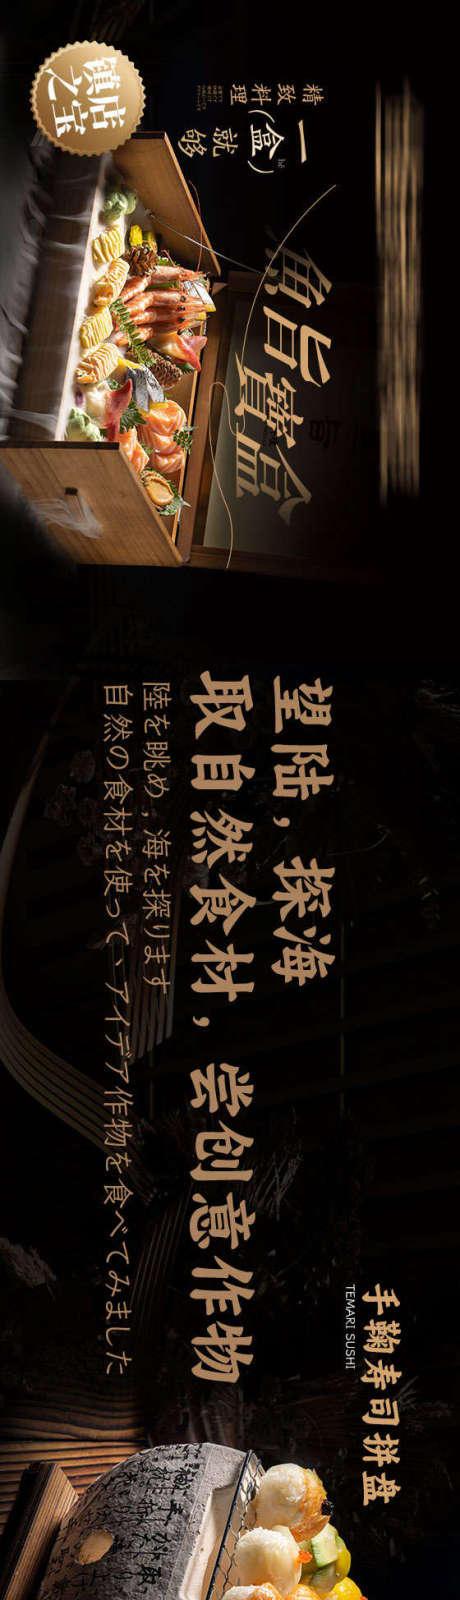 魚旨寶盒
精致料理
一盒就够
(hé)
镇店
之宝
望陆，探海
取自然食材，尝创意作物
陸を眺め，海を探ります
自然の食材を使って、アイデア作物を食べてみました
手鞠寿司拼盘
TEMARI SUSHI